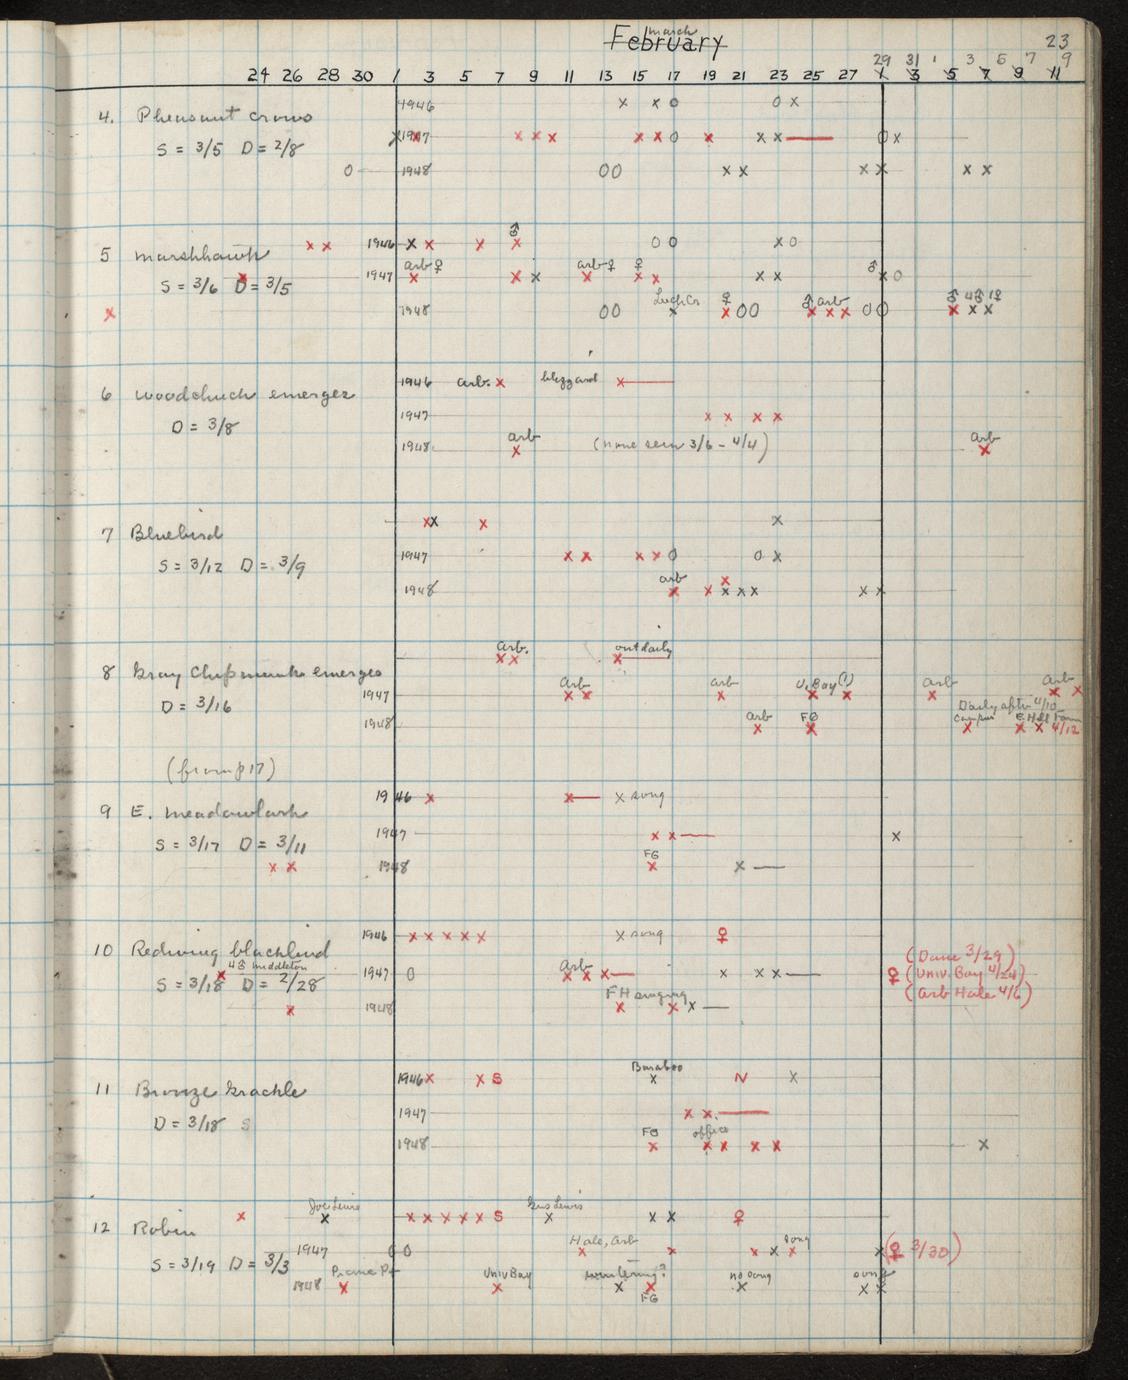 march
February
23
29 31 1 3 5 7 9
24 26 28 30 1 3 5 7 9 11 13 15 17 19 21 23 25 27 1 3 5 7 9 11
4. Pheasant crows
S = 3/5 D = 2/8
1946 x x o o x
1947
1948 o oo x x x x x x
5 marshhawk
S = 3/6 D = 3/5
♂
1946
arb ♀ arb ♀ ♀ ♂
1947
♀ ♂ arb ♂ 4♂ 1♀
1948
6 woodchuck emerges
D = 3/8
1946 arb. x blizzard x
1947 x x x x
arb (none seen 3/6 - 4/4) arb
1948
7 Bluebird
S = 3/12 D = 3/9
1947
arb
1948
8 Gray Chipmunk emerges
D = 3/16
arb. out daily
Arb arb U. Bay (1) arb arb
1947
Daily after 4/10
arb FG Campus E. Hill Farm
1948 4/12
(from p 17)
9 E. meadowlark
S = 3/17 D = 3/11
1946 x x x song
1947
FG
1948
10 Redwing blackbird
4♂ middleton
S = 3/18 D = 2/28
1946 x x x x x x song ♀
Arb
1947 o
FH singing
1948
(Dane 3/29)
♀ (Univ. Bay 4/24)
(arb Hale 4/6)
11 Bronze Grackle
D = 3/18 S
Baraboo
1946 x x S x N x
1947
FG office
1948
12 Robin
S = 3/19 D = 3/3
Joe Lewis Gus Lewis
x x x x x x x S x x x ♀
Hale, arb song
1947 (♀ 3/30)
Univ Bay wintering? no song song
1948
FG